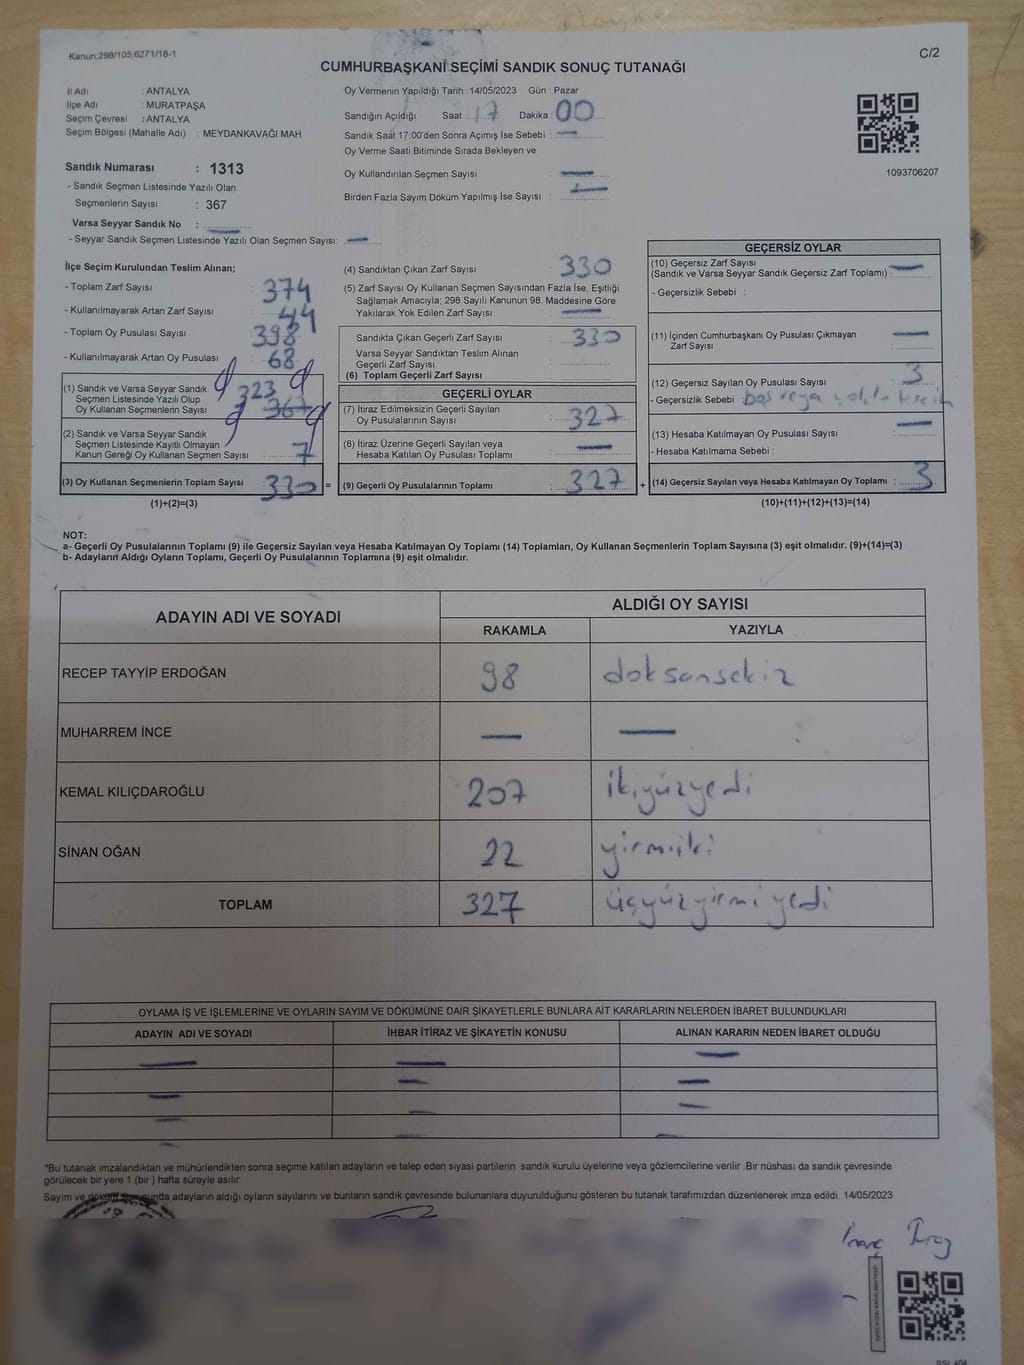 Kanun;298/105;6271/18-1
C/2
CUMHURBAŞKANI SEÇİMİ SANDIK SONUÇ TUTANAĞI
İl Adı : ANTALYA
İlçe Adı : MURATPAŞA
Seçim Çevresi : ANTALYA
Seçim Bölgesi (Mahalle Adı) : MEYDANKAVAĞI MAH.
Sandık Numarası : 1313
- Sandık Seçmen Listesinde Yazılı Olan
Seçmenlerin Sayısı : 367
Varsa Seyyar Sandık No :
- Seyyar Sandık Seçmen Listesinde Yazılı Olan Seçmen Sayısı:
Oy Vermenin Yapıldığı Tarih :14/05/2023 Gün : Pazar
Sandığın Açıldığı Saat : 17 Dakika : 00
Sandık Saat 17:00'den Sonra Açımış İse Sebebi :
Oy Verme Saati Bitiminde Sırada Bekleyen ve
Oy Kullandırılan Seçmen Sayısı :
Birden Fazla Sayım Döküm Yapılmış İse Sayısı :
1093706207
İlçe Seçim Kurulundan Teslim Alınan;
- Toplam Zarf Sayısı : 374
- Kullanılmayarak Artan Zarf Sayısı : 44
- Toplam Oy Pusulası Sayısı : 398
- Kullanılmayarak Artan Oy Pusulası : 68
(1) Sandık ve Varsa Seyyar Sandık
Seçmen Listesinde Yazılı Olup
Oy Kullanan Seçmenlerin Sayısı : 323
367
(2) Sandık ve Varsa Seyyar Sandık
Seçmen Listesinde Kayıtlı Olmayan
Kanun Gereği Oy Kullanan Seçmen Sayısı : 7
(3) Oy Kullanan Seçmenlerin Toplam Sayısı : 330 =
(1)+(2)=(3)
(4) Sandıktan Çıkan Zarf Sayısı : 330
(5) Zarf Sayısı Oy Kullanan Seçmen Sayısından Fazla İse, Eşitliği
Sağlamak Amacıyla; 298 Sayılı Kanunun 98. Maddesine Göre
Yakılarak Yok Edilen Zarf Sayısı :
Sandıkta Çıkan Geçerli Zarf Sayısı : 330
Varsa Seyyar Sandıktan Teslim Alınan
Geçerli Zarf Sayısı :
(6) Toplam Geçerli Zarf Sayısı
GEÇERLİ OYLAR
(7) İtiraz Edilmeksizin Geçerli Sayılan
Oy Pusulalarının Sayısı : 327
(8) İtiraz Üzerine Geçerli Sayılan veya
Hesaba Katılan Oy Pusulası Toplamı :
(9) Geçerli Oy Pusulalarının Toplamı : 327 +
GEÇERSİZ OYLAR
(10) Geçersiz Zarf Sayısı
(Sandık ve Varsa Seyyar Sandık Geçersiz Zarf Toplamı) :
- Geçersizlik Sebebi :
(11) İçinden Cumhurbaşkanı Oy Pusulası Çıkmayan
Zarf Sayısı :
(12) Geçersiz Sayılan Oy Pusulası Sayısı : 3
- Geçersizlik Sebebi : boş veya
(13) Hesaba Katılmayan Oy Pusulası Sayısı :
- Hesaba Katılmama Sebebi :
(14) Geçersiz Sayılan veya Hesaba Katılmayan Oy Toplamı : 3
(10)+(11)+(12)+(13)=(14)
NOT:
a- Geçerli Oy Pusulalarının Toplamı (9) ile Geçersiz Sayılan veya Hesaba Katılmayan Oy Toplamı (14) Toplamları, Oy Kullanan Seçmenlerin Toplam Sayısına (3) eşit olmalıdır. (9)+(14)=(3)
b- Adayların Aldığı Oyların Toplamı, Geçerli Oy Pusulalarının Toplamına (9) eşit olmalıdır.
ADAYIN ADI VE SOYADI
ALDIĞI OY SAYISI
RAKAMLA YAZIYLA
RECEP TAYYİP ERDOĞAN 98 doksansekiz
MUHARREM İNCE
KEMAL KILIÇDAROĞLU 207 ikiyüzyedi
SİNAN OĞAN 22 yirmiiki
TOPLAM 327 üçyüzyirmiyedi
OYLAMA İŞ VE İŞLEMLERİNE VE OYLARIN SAYIM VE DÖKÜMÜNE DAİR ŞİKAYETLERLE BUNLARA AİT KARARLARIN NELERDEN İBARET BULUNDUKLARI
ADAYIN ADI VE SOYADI İHBAR İTİRAZ VE ŞİKAYETİN KONUSU ALINAN KARARIN NEDEN İBARET OLDUĞU
*Bu tutanak imzalandıktan ve mühürlendikten sonra seçime katılan adayların ve talep eden siyasi partilerin sandık kurulu üyelerine veya gözlemcilerine verilir .Bir nüshası da sandık çevresinde
görülecek bir yere 1 (bir ) hafta süreyle asılır.
Sayım ve döküm sonunda adayların aldığı oyların sayılarını ve bunların sandık çevresinde bulunanlara duyurulduğunu gösteren bu tutanak tarafımızdan düzenlenerek imza edildi. 14/05/2023